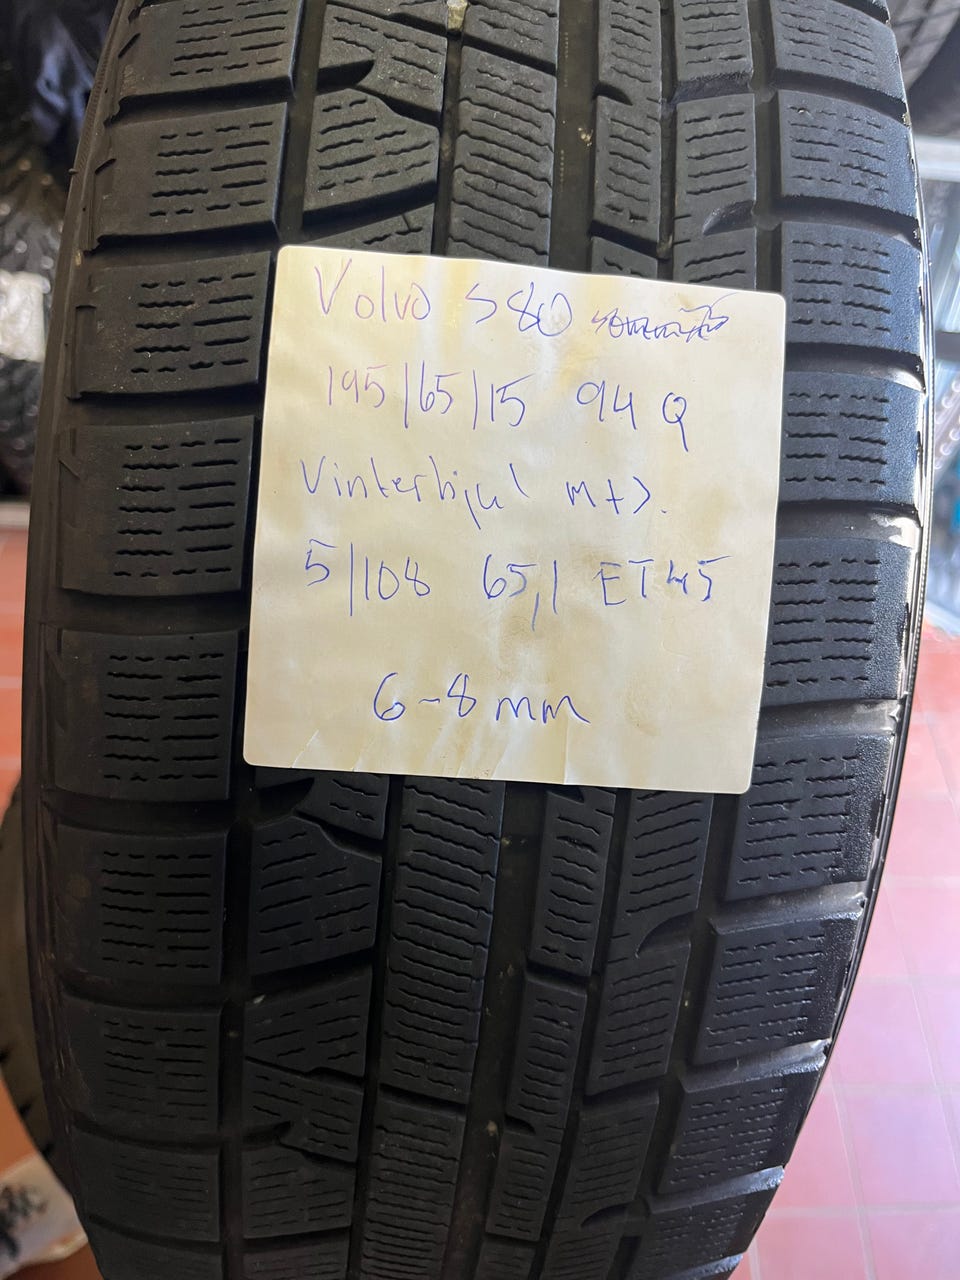 Volvo S80
195/65/15 94 Q
Vinterhjul
5/108 65,1 ET45
6-8 mm